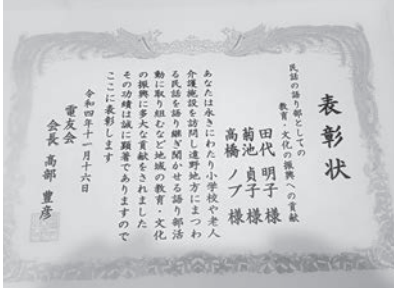 表彰状
民話の語り部としての
教育・文化の振興への貢献
田代 明子 様
菊池 貞子 様
高橋 ノブ 様
あなたは永きにわたり小学校や老人
介護施設を訪問し遠野地方にまつわ
る民話を語り継ぎ聞かせる語り部活
動に取り組むなど地域の教育・文化
の振興に多大な貢献をされました
その功績は誠に顕著でありますので
ここに表彰します
令和四年十一月十六日
電友会
会長 高部 豊彦